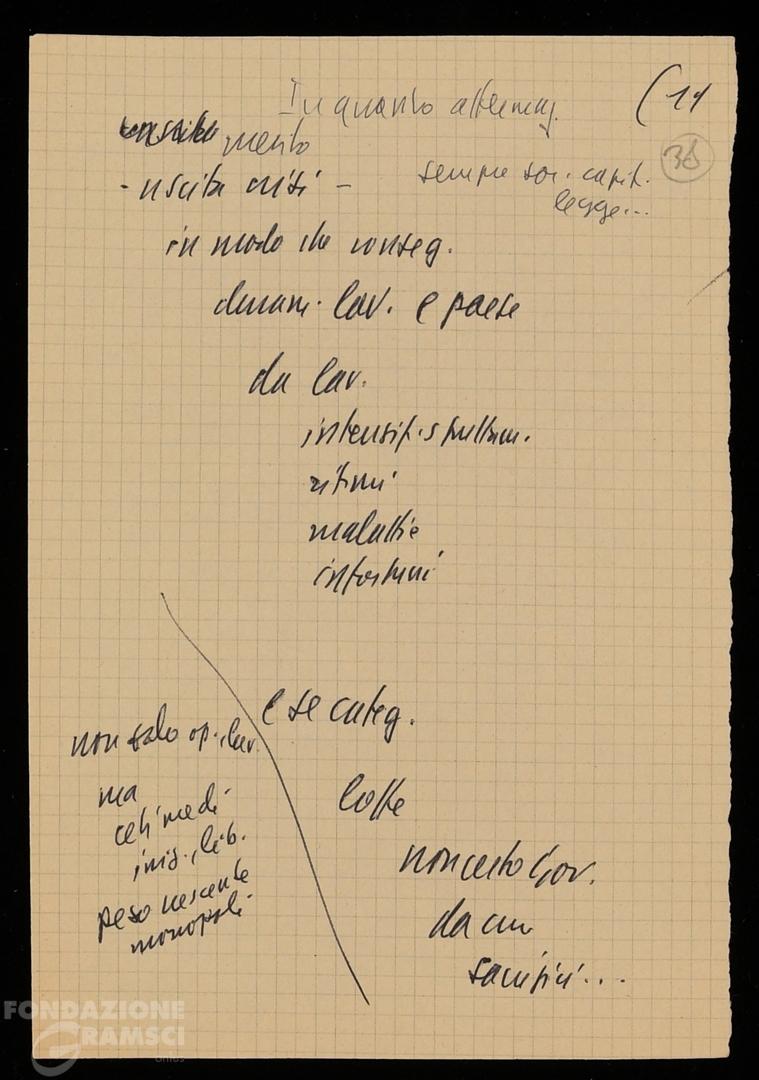 In quanto
(11
merito
36
- uscita crisi -
sempre soc. capit.
legge...
in modo che conseg.
lav. e paese
da lav.
intensif. sfruttam.
ritmi
malattie
infortuni
e se categ.
non solo op. lav.
ma
ceti medi
ing., lib.
peso crescente
monopoli
lotte
non certo Gov.
da cui
sacrifici...
FONDAZIONE
GRAMSCI
onlus